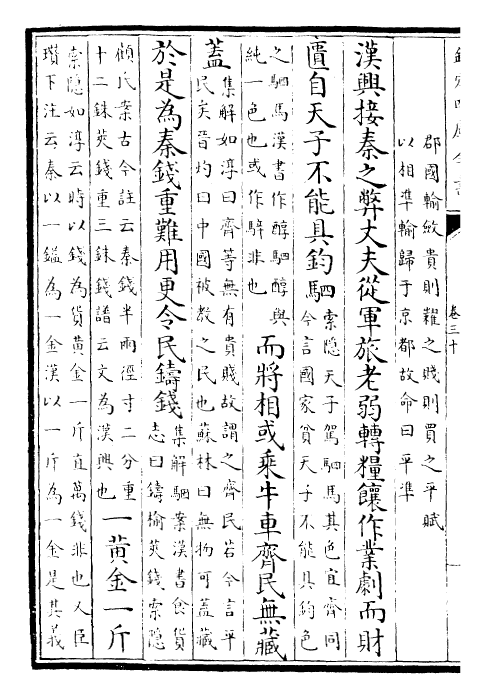 欽定四庫全書
卷三十
郡國輸斂貴則糶之賤則買之平賦
以相準輸歸于京都故命曰平準
漢興接秦之弊丈夫從軍旅老弱轉糧饟作業劇而財
匱自天子不能具鈞駟
索隱天子駕駟馬其色宜齊同
今言國家貧天子不能具鈞色
之駟馬漢書作醇駟醇與
純一色也或作騂非也
而將相或乘牛車齊民無藏
蓋
集解如淳曰齊等無有貴賤故謂之齊民若今言平
民矣晉灼曰中國被教之民也蘇林曰無物可蓋藏
於是為秦錢重難用更令民鑄錢
集解駟案漢書食貨
志曰鑄榆莢錢索隱
顧氏案古今註云秦錢半兩徑寸二分重
十二銖莢錢重三銖錢譜云文為漢興也
一黄金一斤
索隱如淳云時以錢為貨黄金一斤直萬錢非也又臣
瓚下注云秦以一鎰為一金漢以一斤為一金是其義